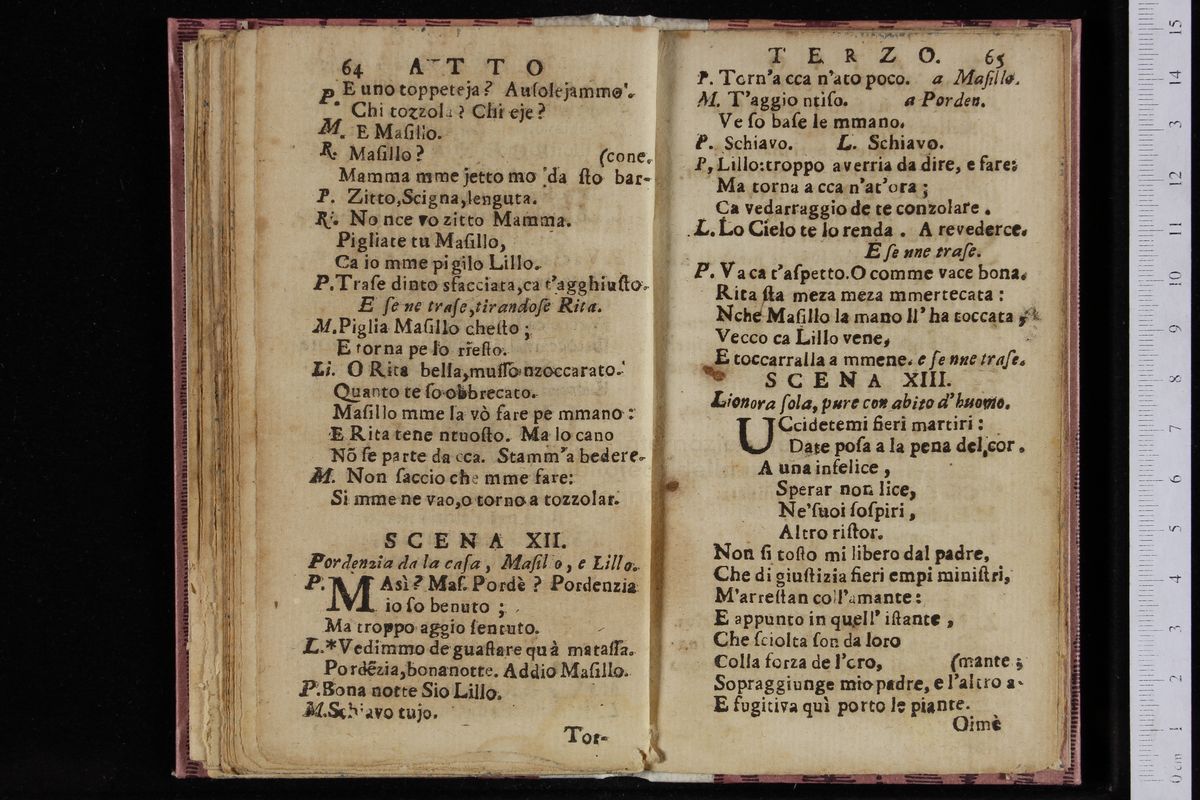 64 ATTO
P. E uno toppeteja? Auſolejammo.
Chi tozzola? Chi eje?
M. E Maſillo.
R. Maſillo? (cone.
Mamma mme jetto mo da ſto bar-
P. Zitto, Scigna, lenguta.
R. No nce vo zitto Mamma.
Pigliate tu Maſillo,
Ca io mme pigilo Lillo.
P. Traſe dinto sfacciata, ca t'agghiuſto.
E ſe ne traſe, tirandoſe Rita.
M. Piglia Maſillo cheſto;
E torna pe lo rreſto.
Li. O Rita bella, muſſo nzoccarato.
Quanto te ſo obbrecato.
Maſillo mme la vò fare pe mmano:
E Rita tene ntuoſto. Ma lo cano
Nõ ſe parte da cca. Stamm'a bedere.
M. Non ſaccio che mme fare:
Si mme ne vao, o torno a tozzolar.
SCENA XII.
Pordenzia da la caſa, Maſillo, e Lillo.
P. MAsì? Maſ. Pordè? Pordenzia
io ſo benuto;
Ma troppo aggio ſentuto.
L.*Vedimmo de guaſtare quà mataſſa.
Pordẽzia, bonanotte. Addio Maſillo.
P. Bona notte Sio Lillo.
M. Schiavo tujo.
Tor-
TERZO. 65
P. Torn'a cca n'ato poco. a Maſillo.
M. T'aggio ntiſo. a Porden.
Ve ſo baſe le mmano.
P. Schiavo. L. Schiavo.
P, Lillo: troppo averria da dire, e fare;
Ma torna a cca n'at'ora;
Ca vedarraggio de te conzolare.
L. Lo Cielo te lo renda. A revederce.
E ſe nne traſe.
P. Va ca t'aſpetto. O comme vace bona.
Rita ſta meza meza mmertecata:
Nche Maſillo la mano ll'ha toccata;
Vecco ca Lillo vene,
E toccarralla a mmene. e ſe nne traſe.
SCENA XIII.
Lionora ſola, pure con abito d'huomo.
UCcidetemi fieri martiri:
Date poſa a la pena del cor.
A una infelice,
Sperar non lice,
Ne'ſuoi ſoſpiri,
Altro riſtor.
Non ſi toſto mi libero dal padre,
Che di giuſtizia fieri empi miniſtri,
M'arreſtan coll'amante:
E appunto in quell' iſtante,
Che ſciolta ſon da loro
Colla forza de l'oro, (mante;
Sopraggiunge mio padre, e l'altro a-
E fugitiva quì porto le piante.
Oimè
15
14
13
12
11
10
9
8
7
6
5
4
3
2
1
0 cm